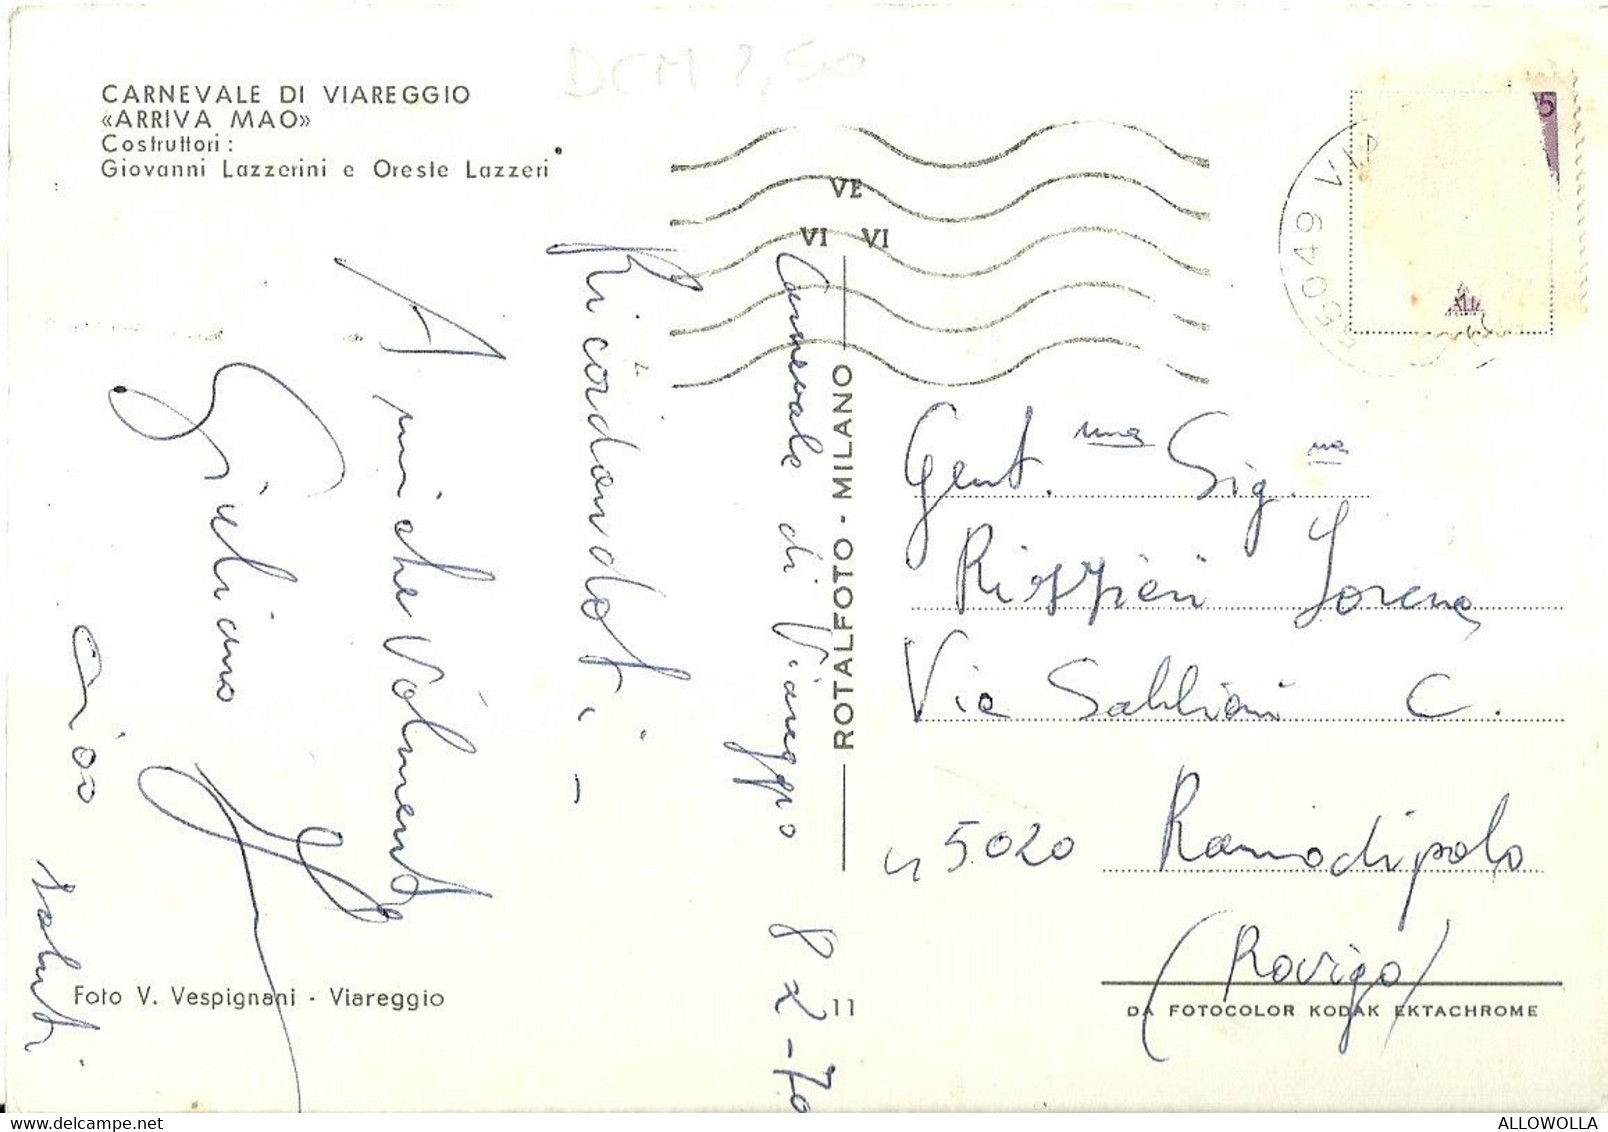 DCM 2,50
CARNEVALE DI VIAREGGIO
«ARRIVA MAO»
Costruttori:
Giovanni Lazzerini e Oreste Lazzeri
VE
VI VI
55049 VIA
5
Carnevale di Viareggio 8-2-70
Ricordandoti -
Amichevolmente
Giuliano
ciao
saluti.
ROTALFOTO - MILANO
Gent.ma Sig.na
Lorena
Via Sabbioni C.
45020 Ramodipalo
(Rovigo)
Foto V. Vespignani - Viareggio
11
DA FOTOCOLOR KODAK EKTACHROME
ALLOWOLLA